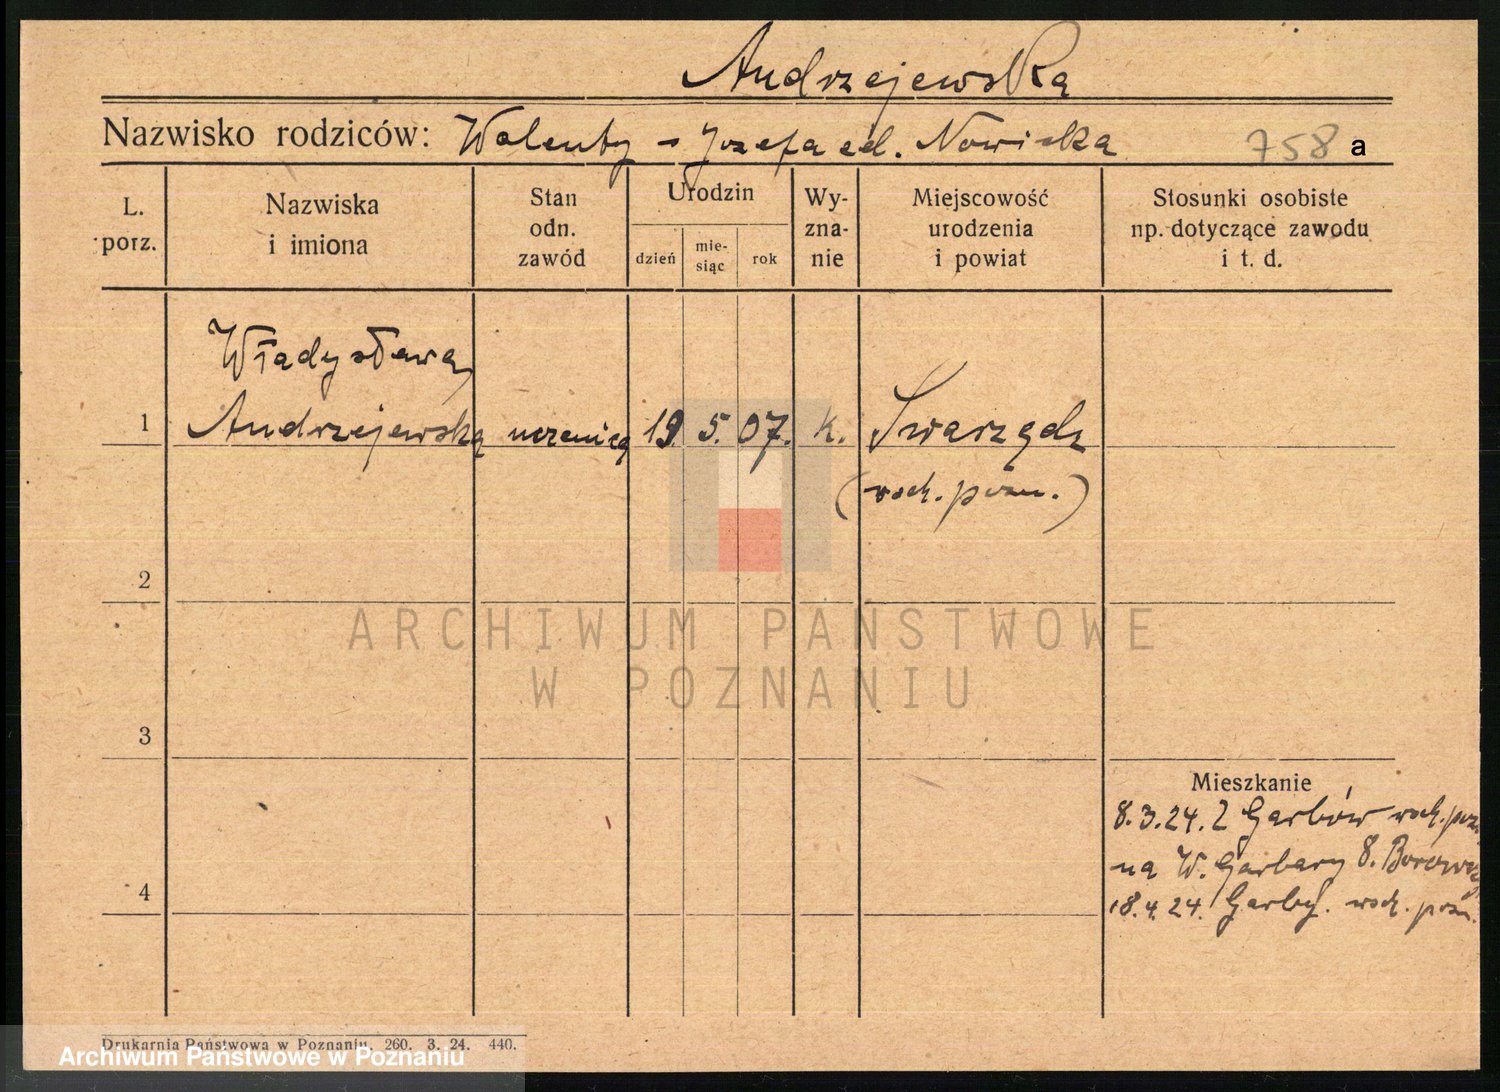 Andrzejewska
Nazwisko rodziców: Walenty - Jozefa ed. Nowicka 758 a
L. porz.
Nazwiska i imiona
Stan odn. zawód
Urodzin
dzień
mie-siąc
rok
Wy-zna-nie
Miejscowość urodzenia i powiat
Stosunki osobiste np. dotyczące zawodu i t. d.
Władysława
1 Andrzejewska uczenica 19. 5. 07. k. Swarzędz
(wsch. pozn.)
2
ARCHIWUM PAŃSTWOWE
W POZNANIU
3
Mieszkanie
8.3.24. Z Garbów wsch. poz.
na W. Garbary 8.
4
18.4.24. Garby. wsch. pozn.
Drukarnia Państwowa w Poznaniu. 260. 3. 24. 440.
Archiwum Państwowe w Poznaniu